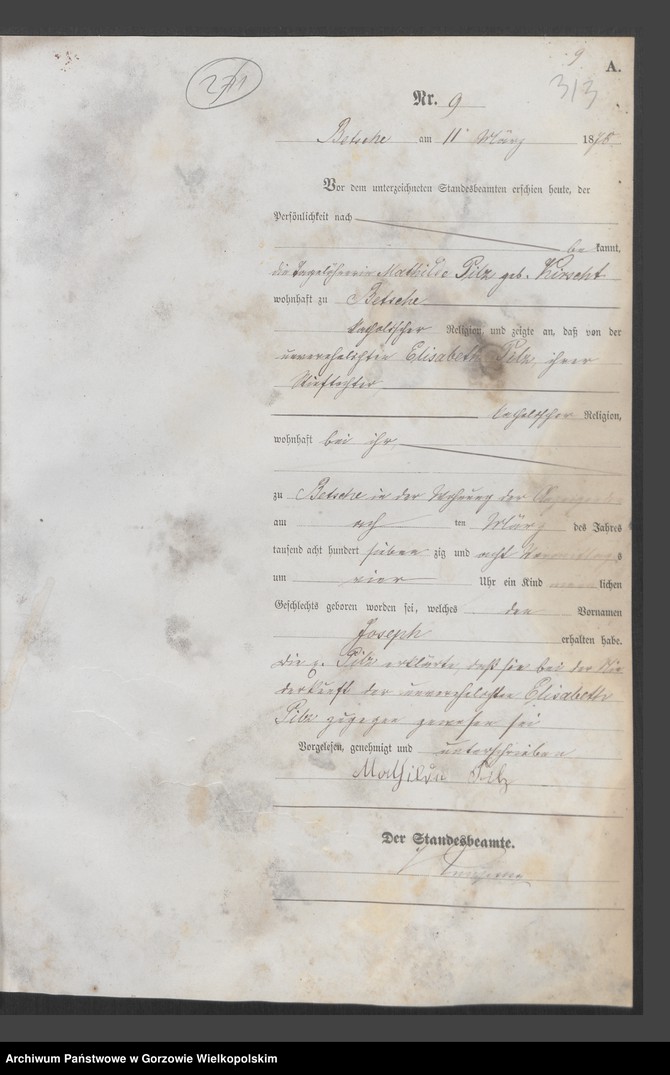 9
A.
271
313
Nr. 9
Betsche am 11 März 1878
Vor dem unterzeichneten Standesbeamten erschien heute, der
Persönlichkeit nach
be kannt,
die Tagelöhnerin Mathilde Pilz geb. Hirscht
wohnhaft zu Betsche
katholischer Religion, und zeigte an, daß von der
unverehelichten Elisabeth Pilz, ihrer
Stieftochter
katholischer Religion,
wohnhaft bei ihr
zu Betsche in der Wohnung der
am ach ten März des Jahres
tausend acht hundert sieben zig und acht Vormittags
um vier Uhr ein Kind männlichen
Geschlechts geboren worden sei, welches den Vornamen
Joseph erhalten habe.
Die p. Pilz erklärte, daß sie bei der Nie
derkunft der unverehelichten Elisabeth
Pilz zugegen gewesen sei
Vorgelesen, genehmigt und unterschrieben
Mathilda Pilz
Der Standesbeamte.
Archiwum Państwowe w Gorzowie Wielkopolskim